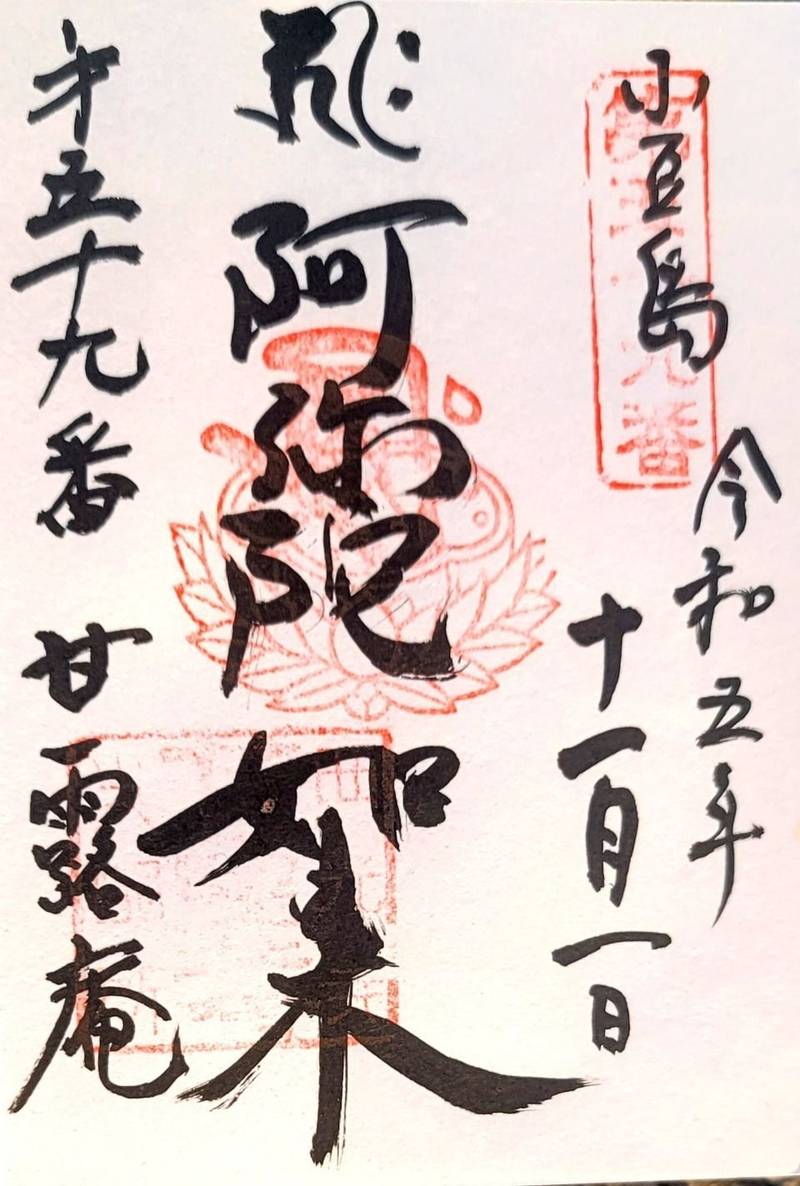 小豆島
令和五年
十一月一日
𑖮𑖿𑖨𑖱𑖾 阿弥陀如来
才五十九番 甘露庵